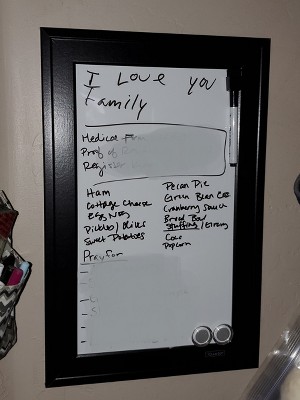 I Love you
Family
Medical
Proof of
Register
Ham
Cottage Cheese
Eggnog
Pickles/Olives
Sweet Potatoes
Pray for
Pecan Pie
Green Bean
Cranberry Sauce
Bread Bowl
Stuffing/
Coke
Popcorn